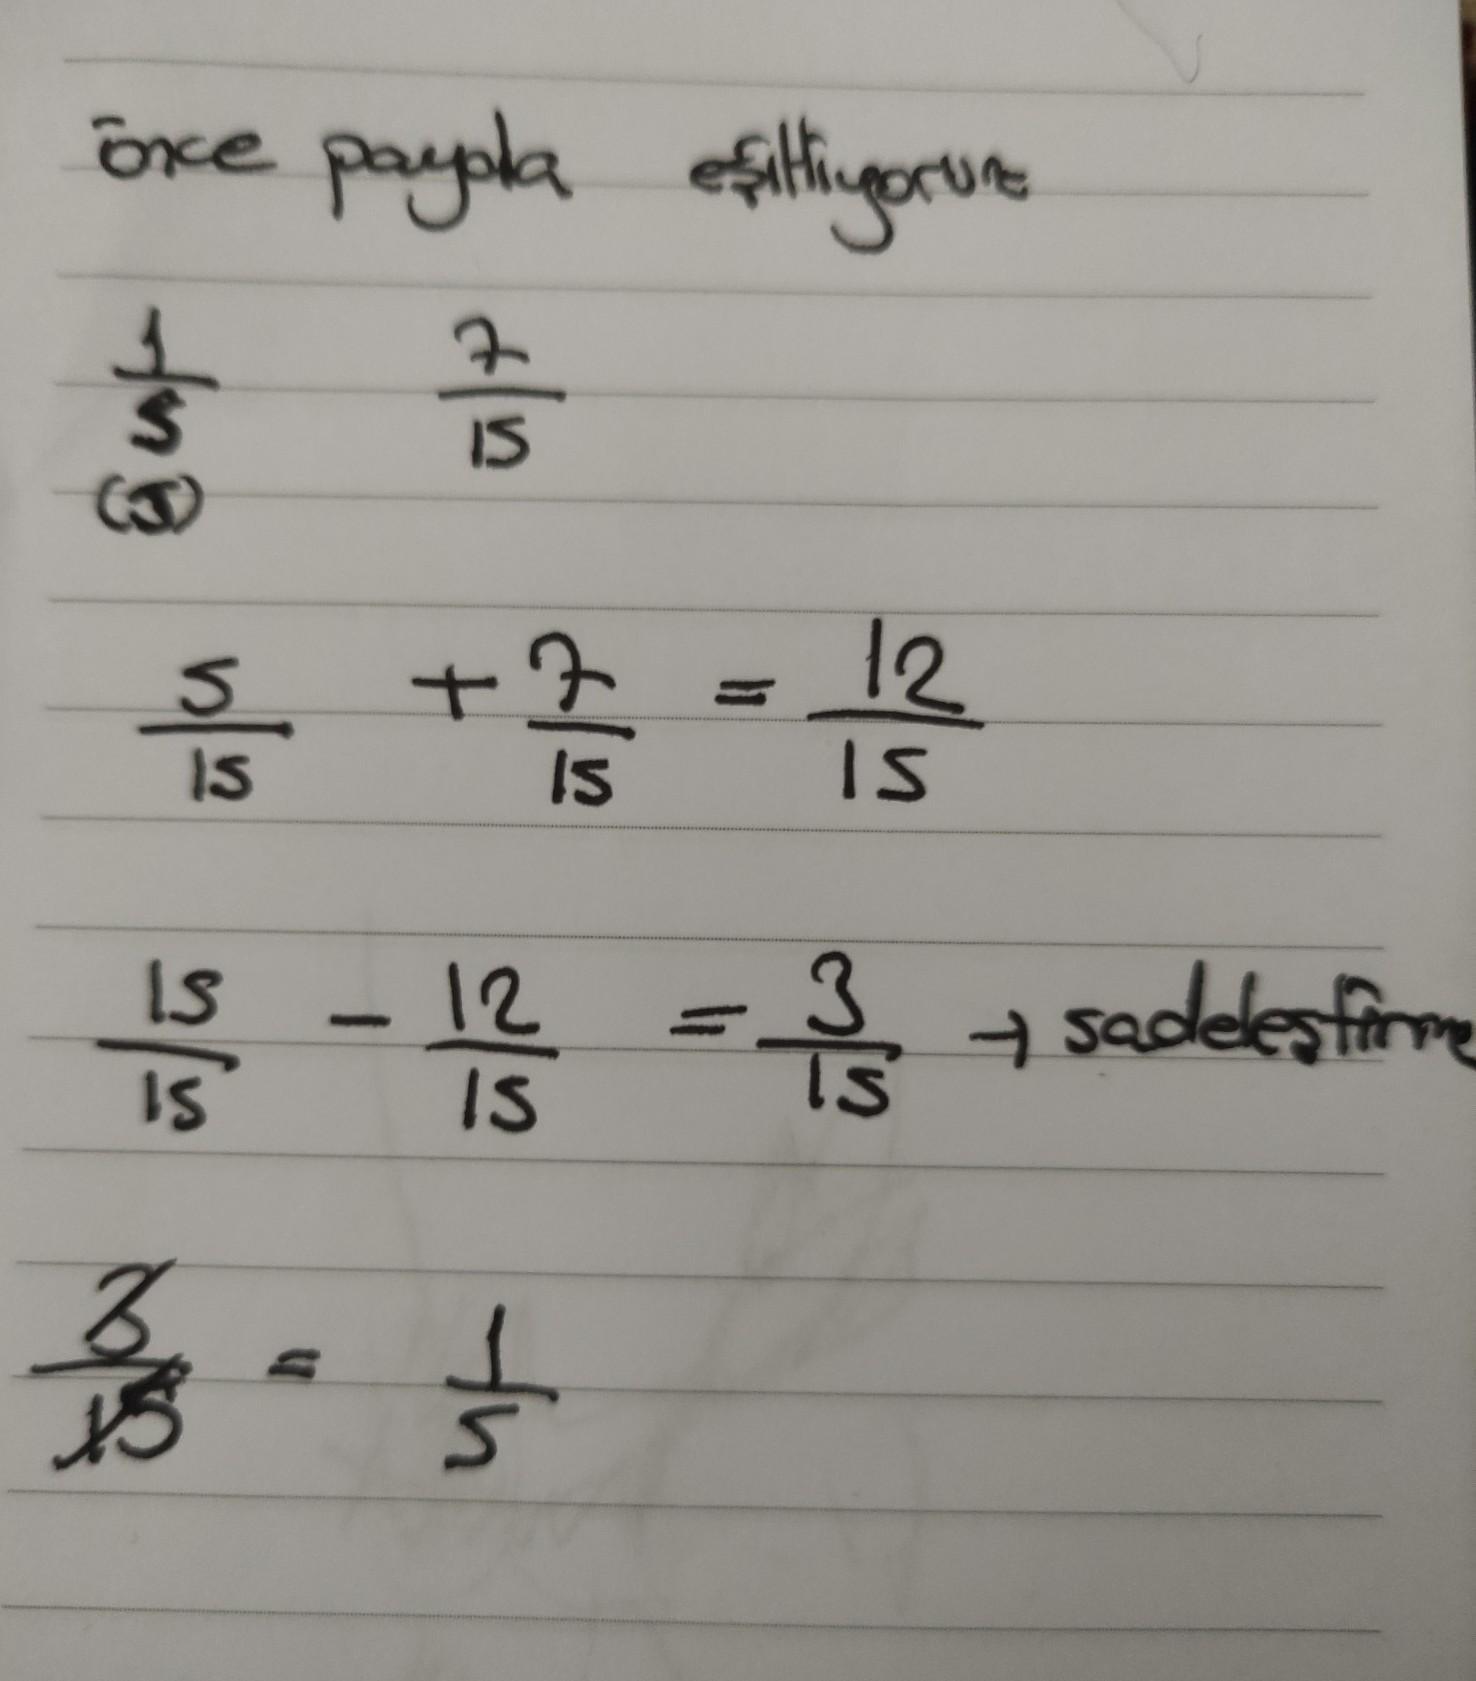 önce payda eşitliyorum
1/5 7/15
(5)
5/15 + 7/15 = 12/15
15/15 - 12/15 = 3/15 → sadeleştirme
3/15 = 1/5